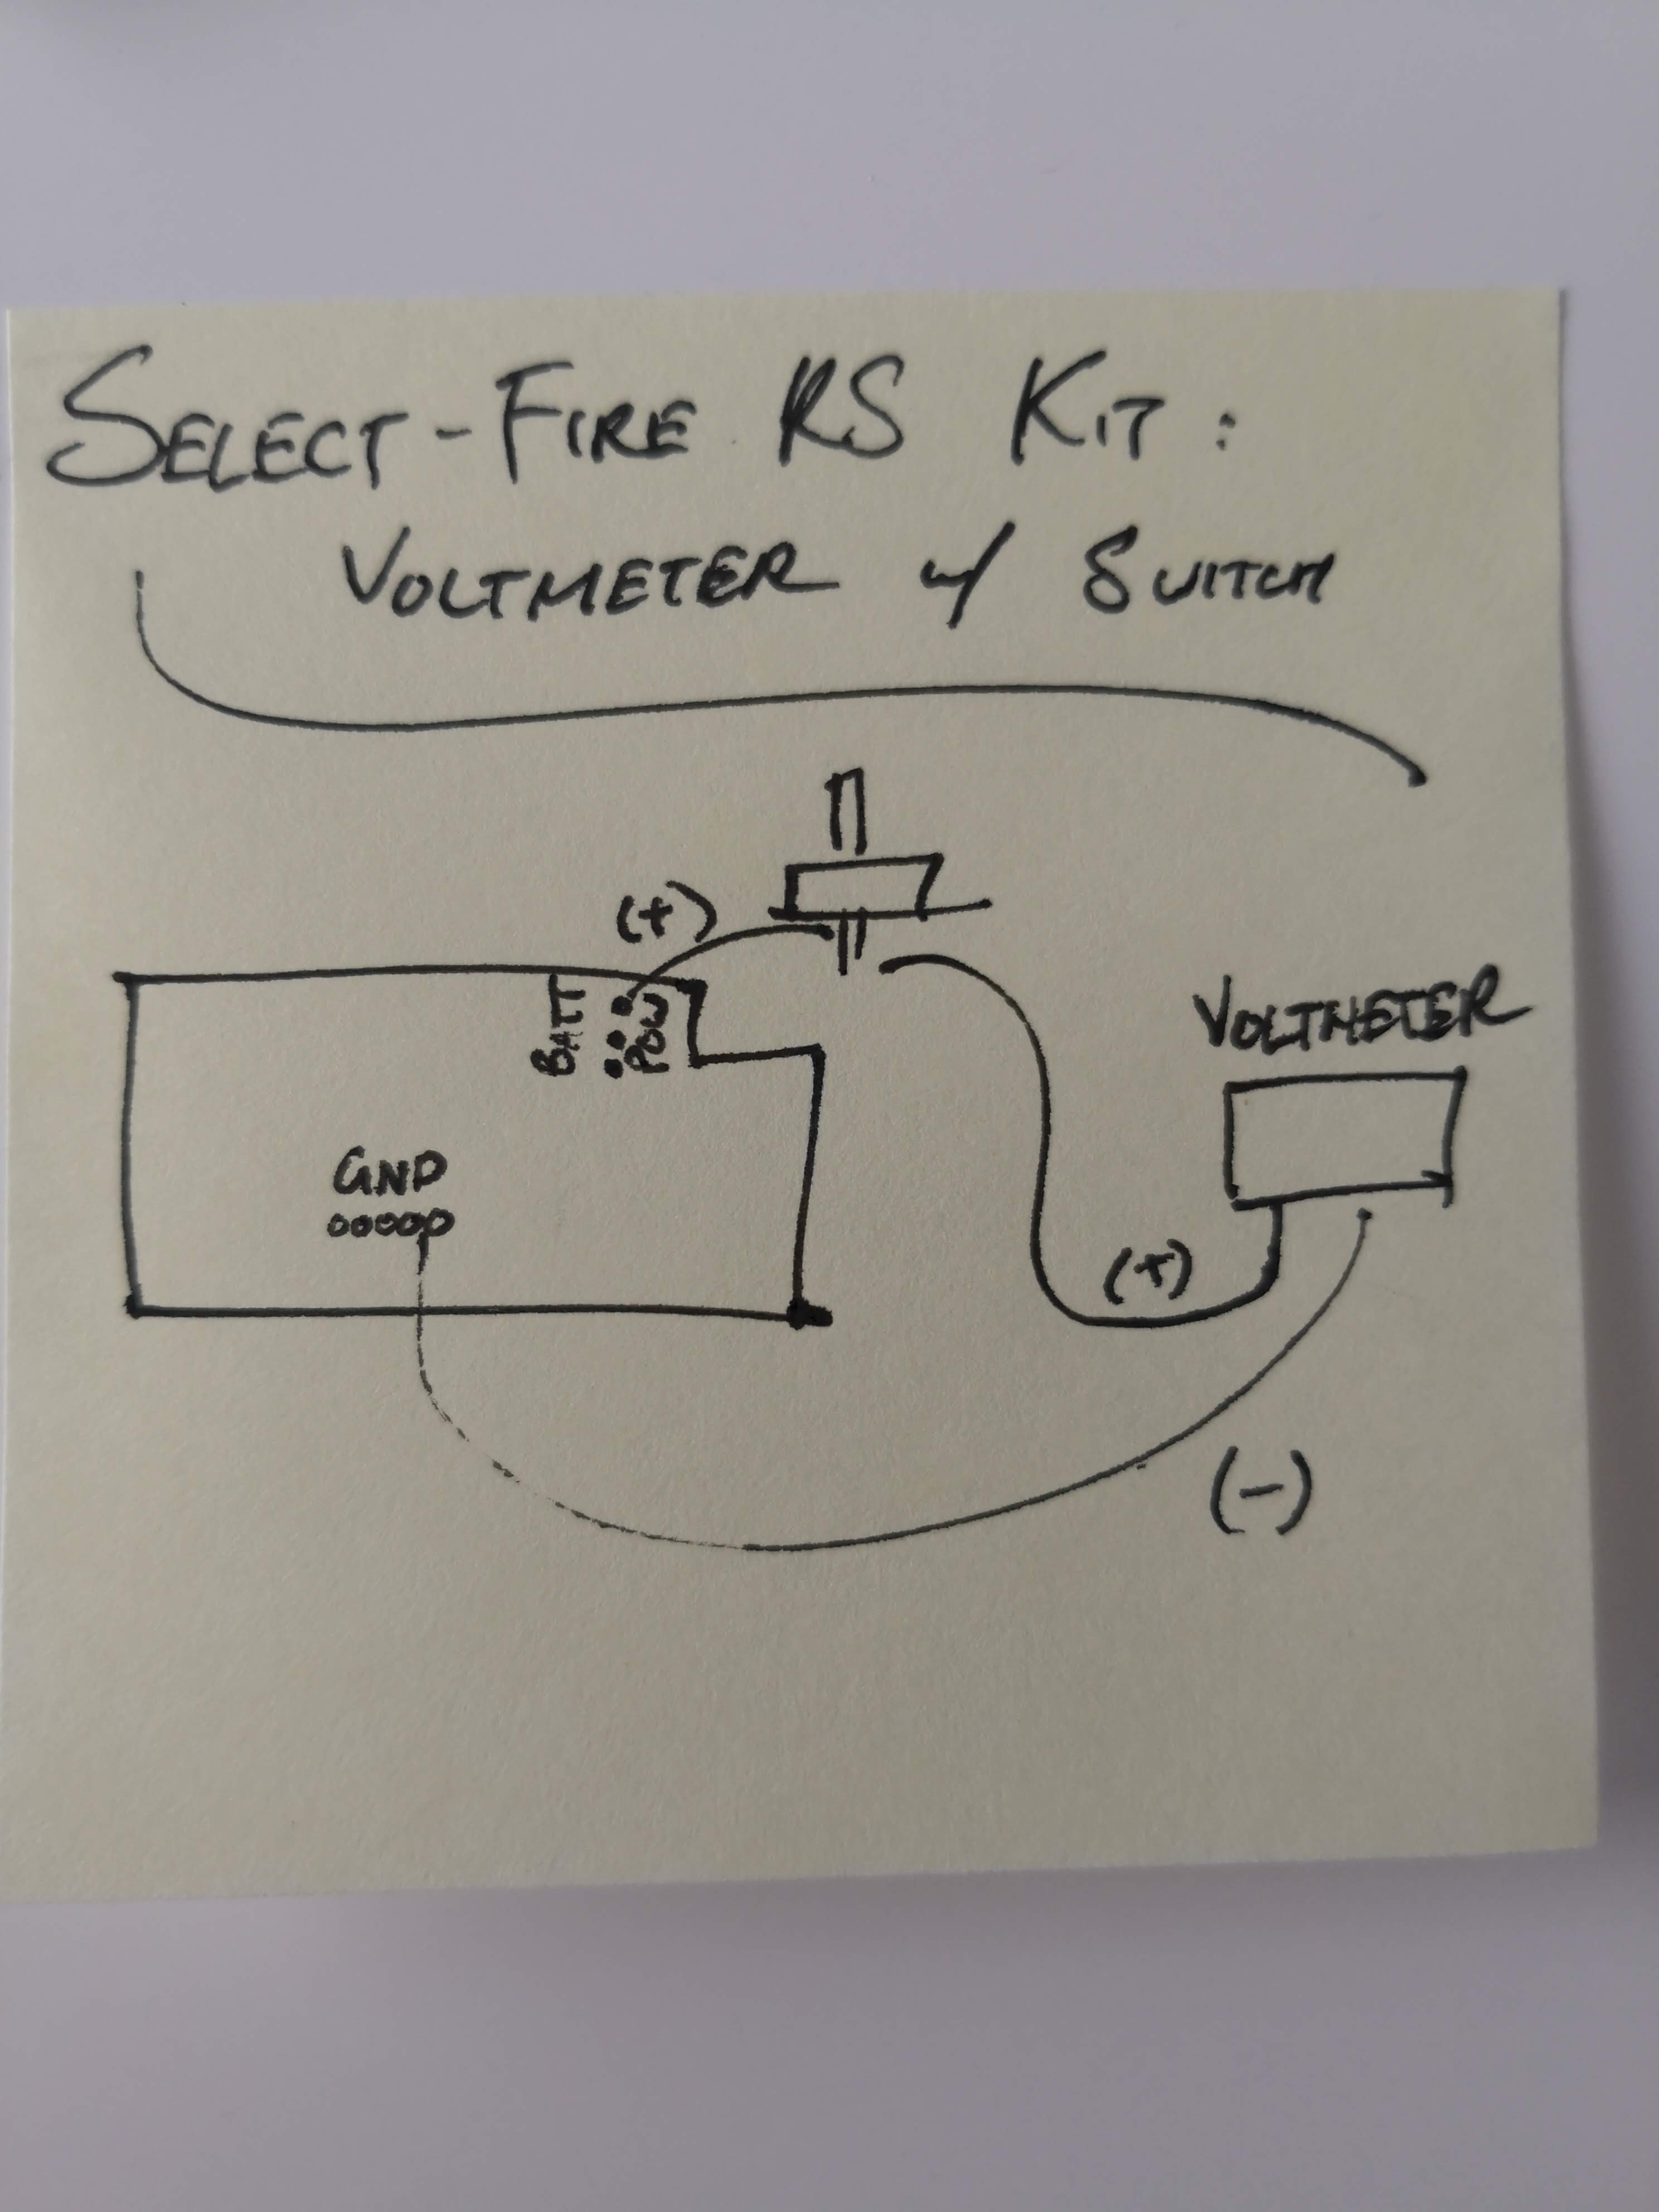 SELECT-FIRE RS KIT:
VOLTMETER w/ SWITCH
(+)
BATT
POW
VOLTMETER
GND
(+)
(-)